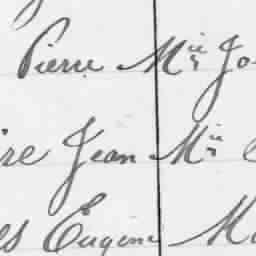 Pierre Mie Jo
re Jean Mie
es Eugene Ma